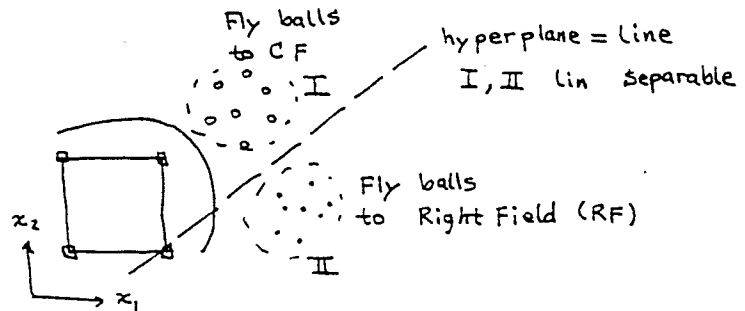 Fly balls
to CF
I
hyperplane = line
I, II lin separable
Fly balls
to Right Field (RF)
II
x₂
x₁